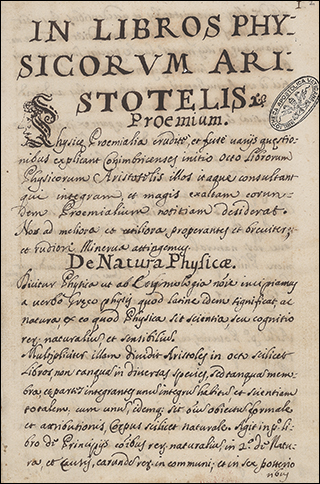 IN LIBROS PHY-
SICORVM ARI-
STOTELIS
Proemium.
Physicæ Proemialia erudite, et fuse varijs quæstio-
nibus explicant Conimbricenses initio Octo Librorum
Physicorum Aristotelis illos itaque consultant
qui integram et magis exactam eorun-
dem Proemialium notitiam desiderat.
Nos ad meliora et utiliora properantes et breviter,
et rudiori Minerva attingemus.
De Natura Physicæ.
Dicitur Physica ut ab Etymologia incipiamus
a verbo Græco physis quod latine idem significat, ac
natura, et eo quod Physica sit scientia, seu cognitio
rerum naturalium et sensibilium.
Multipliciter illam dividit Aristoteles in octo scilicet
Libros, non tanquam in diversas species, sed tanquam mem-
bra, et partes integrantes unum integrum habitum et scientiam
totalem, cum unum, idemque sit obiectum formale
et attributionis, Corpus scilicet naturale. Agit in
libro de Principijs rerum naturalium in 2º de Natu-
ra, et Causis, earundem in communi, et in sex